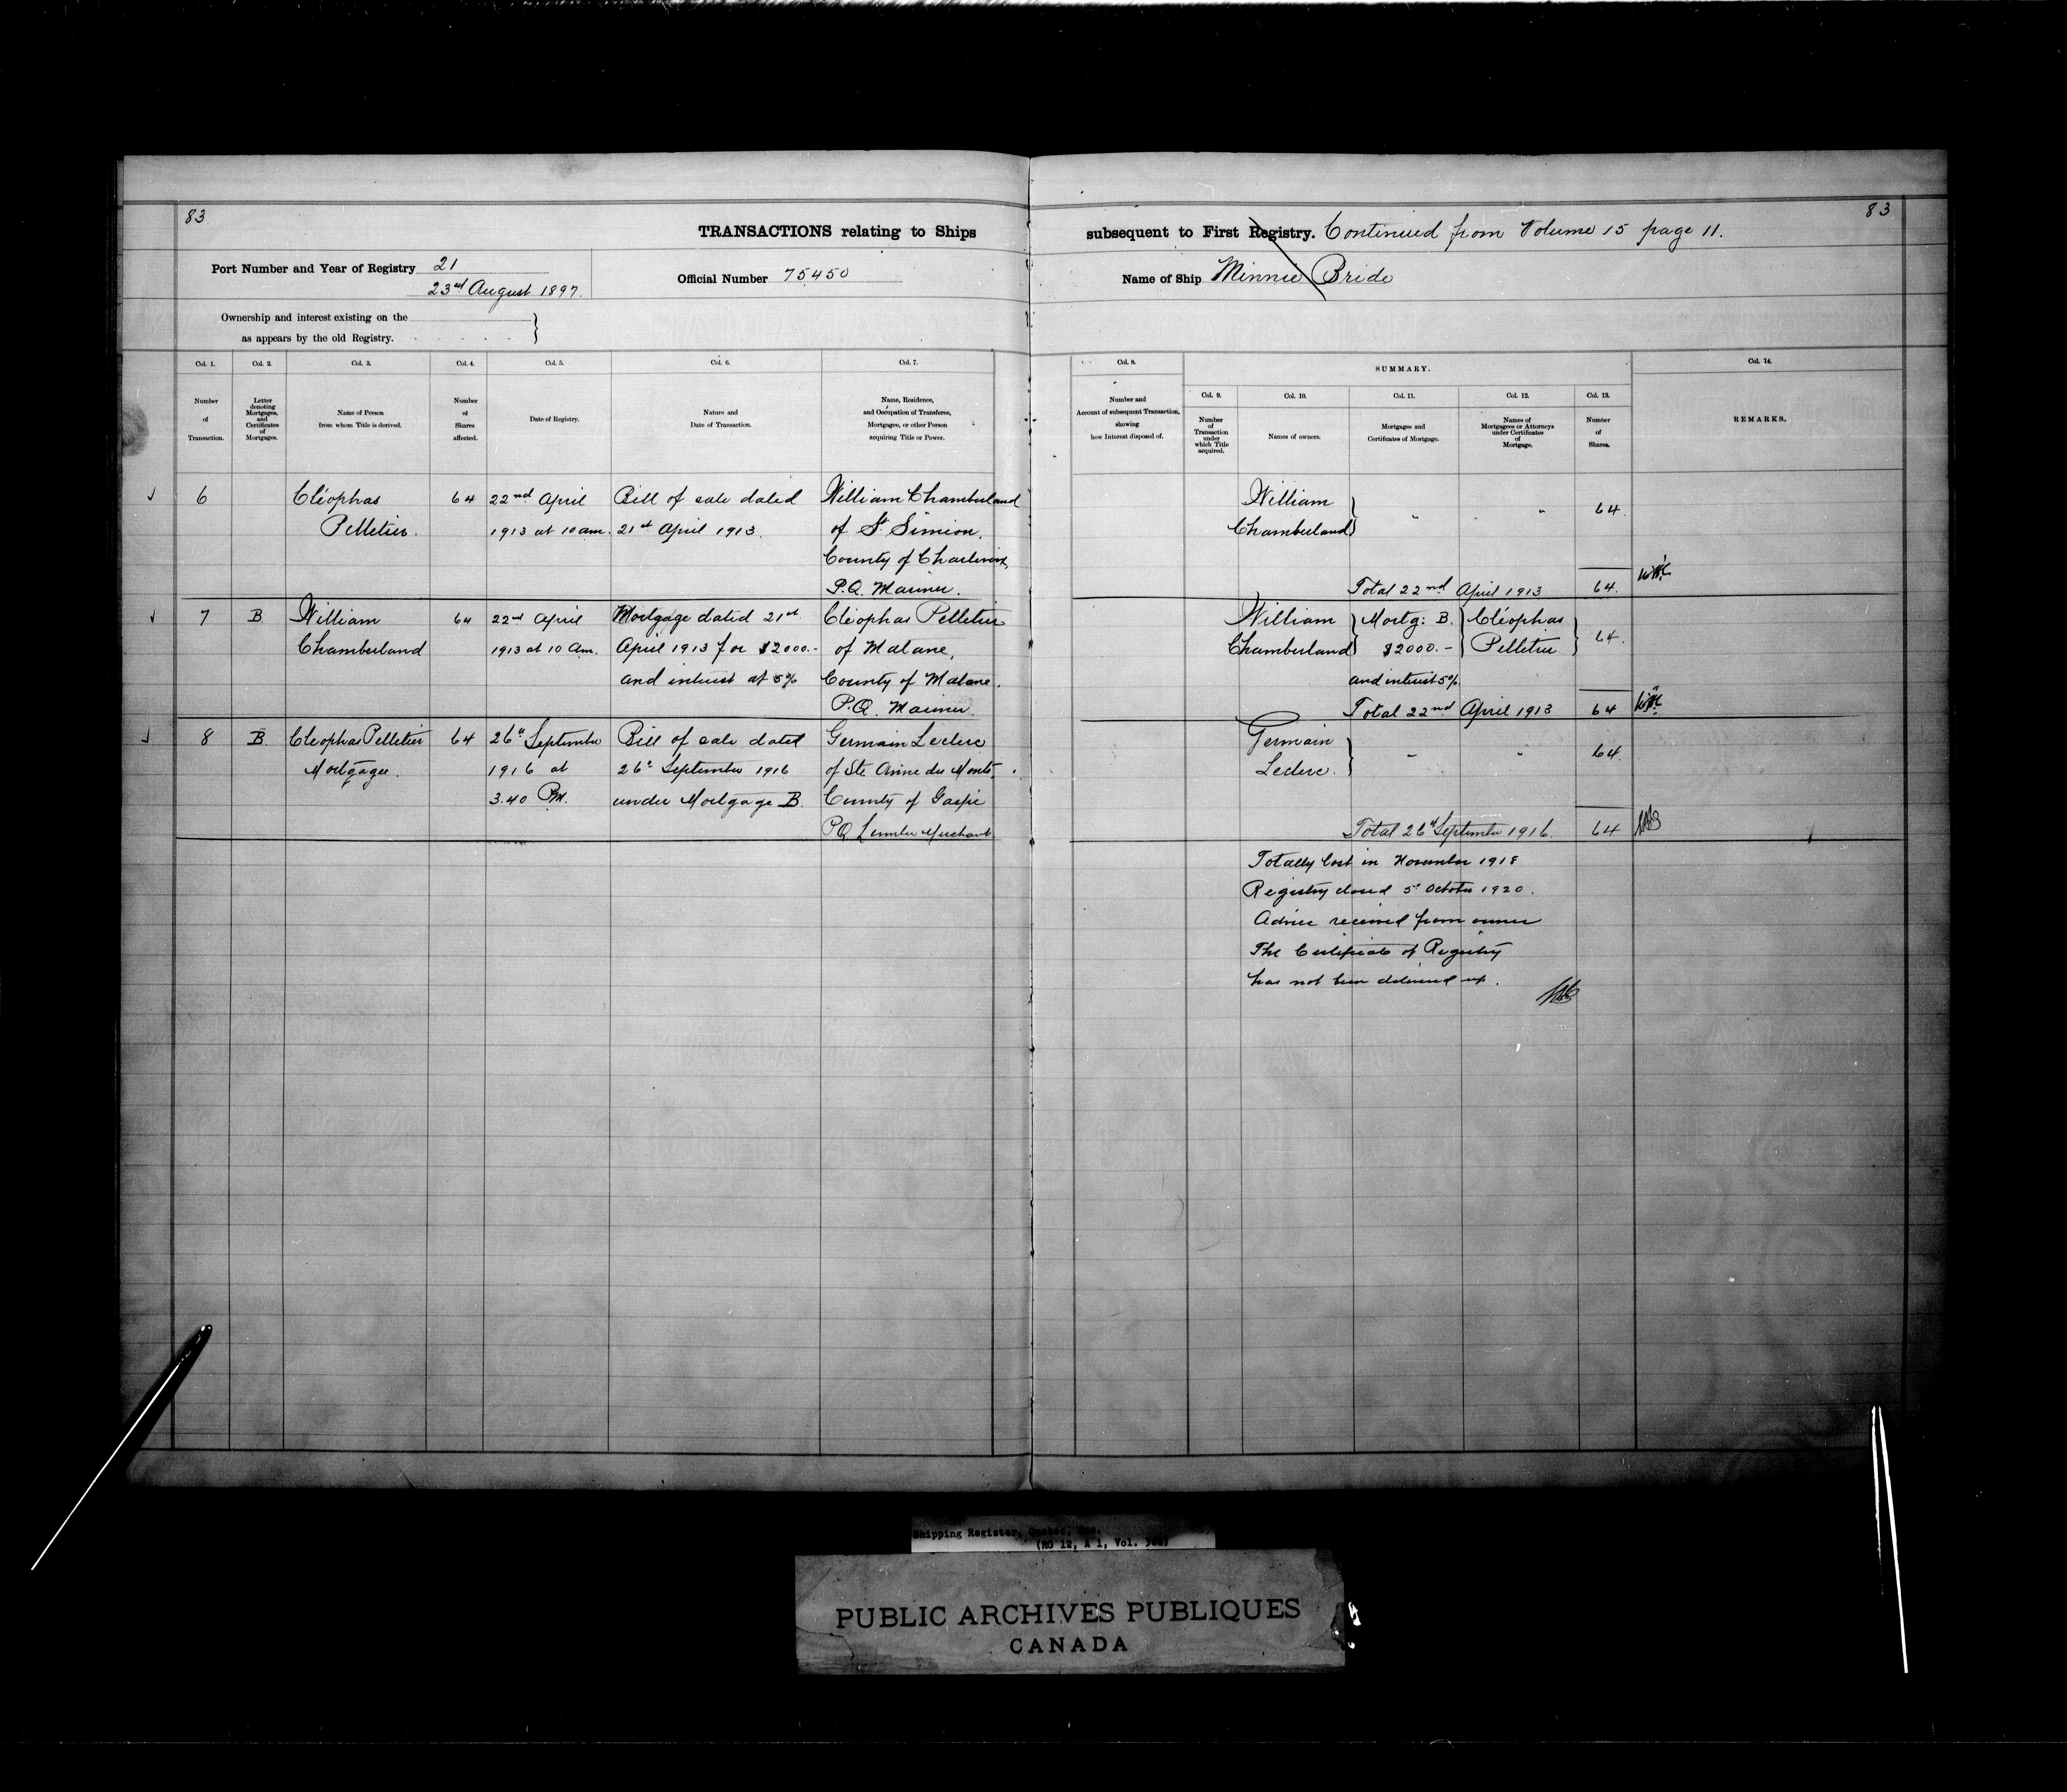 83
83
TRANSACTIONS relating to Ships
subsequent to First Registry. Continued from Volume 15 page 11.
Port Number and Year of Registry 21
23rd August 1897.
Official Number 75450
Name of Ship Minnie Bride
Ownership and interest existing on the
as appears by the old Registry.
Col. 1.
Number
of
Transaction.
Col. 2.
Letter
denoting
Mortgages,
and
Certificates
of
Mortgages.
Col. 3.
Name of Person
from whom Title is derived.
Col. 4.
Number
of
Shares
affected.
Col. 5.
Date of Registry.
Col. 6.
Nature and
Date of Transaction.
Col. 7.
Name, Residence,
and Occupation of Transferee,
Mortgagee, or other Person
acquiring Title or Power.
Col. 8.
Number and
Account of subsequent Transaction,
showing
how Interest disposed of.
SUMMARY.
Col. 9.
Number
of
Transaction
under
which Title
acquired.
Col. 10.
Names of owners.
Col. 11.
Mortgages and
Certificates of Mortgage.
Col. 12.
Names of
Mortgagees or Attorneys
under Certificates
of
Mortgage.
Col. 13.
Number
of
Shares.
Col. 14.
REMARKS.
6
Cléophas
Pelletier.
64
22nd April
1913 at 10 am.
Bill of sale dated
21st April 1913.
William Chamberland
of St Simion,
County of Charlevoix,
P.Q. Mariner.
William
Chamberland
64.
Total 22nd April 1913
64.
7
B.
William
Chamberland
64
22nd April
1913 at 10 Am.
Mortgage dated 21st
April 1913 for $2000.-
and interest at 5%
Cléophas Pelletier
of Matane,
County of Matane.
P.Q. Mariner.
William
Chamberland
Mortg: B.
$2000.-
and interest 5%.
Cléophas
Pelletier
64.
Total 22nd April 1913
64
8
B.
Cleophas Pelletier
Mortgagee.
64
26th September
1916 at
3.40 PM.
Bill of sale dated
26th September 1916
under Mortgage B.
Germain Leclerc
of Ste Anne des Monts,
County of Gaspé
PQ Lumber Merchant
Germain
Leclerc.
64.
Total 26th September 1916.
64
Totally lost in November 1918
Registry closed 5th October 1920.
Advice received from owner
The Certificate of Registry
has not been delivered up.
Shipping Register, Quebec, Que.
(RG 12, A 1, Vol.
PUBLIC ARCHIVES PUBLIQUES
CANADA